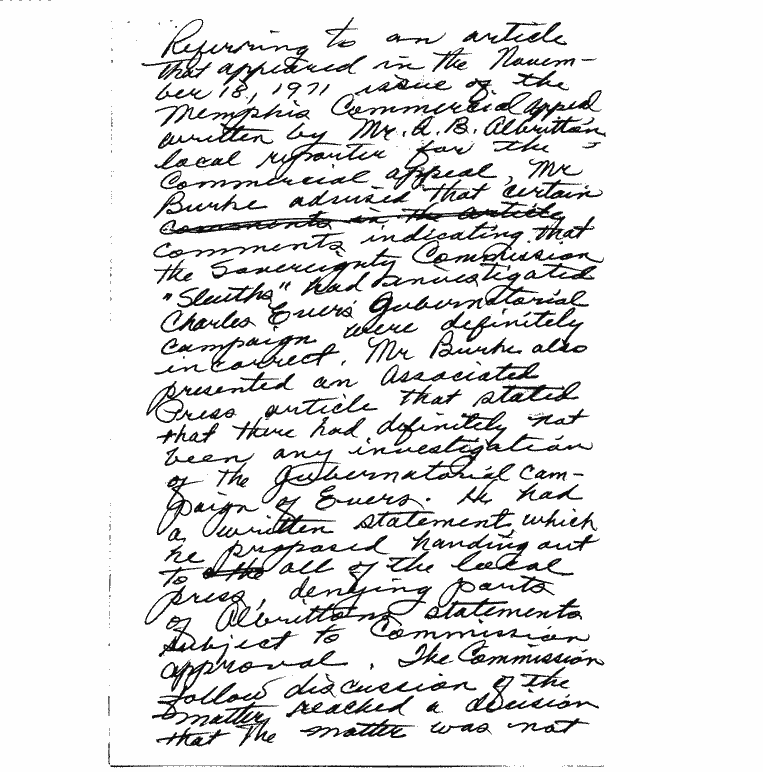 Referring to an article
that appeared in the Novem-
ber 18, 1971 issue of the
Memphis Commercial Appeal
written by Mr. A. B. Albritton
local reporter for the
Commercial appeal, Mr
Burke advised that certain
comments in the article
comments indicating that
the Sovereignty Commission
"Sleuths" had investigated
Charles Evers' Gubernatorial
Campaign were definitely
incorrect. Mr Burke also
presented an Associated
Press article that stated
that there had definitely not
been any investigation
of the Gubernatorial Cam-
paign of Evers. He had
a written statement, which
he proposed handing out
to the all of the local
press, denying parts
of Albrittons statements
subject to Commission
approval. The Commission
follow discussion of the
matter reached a decision
that the matter was not